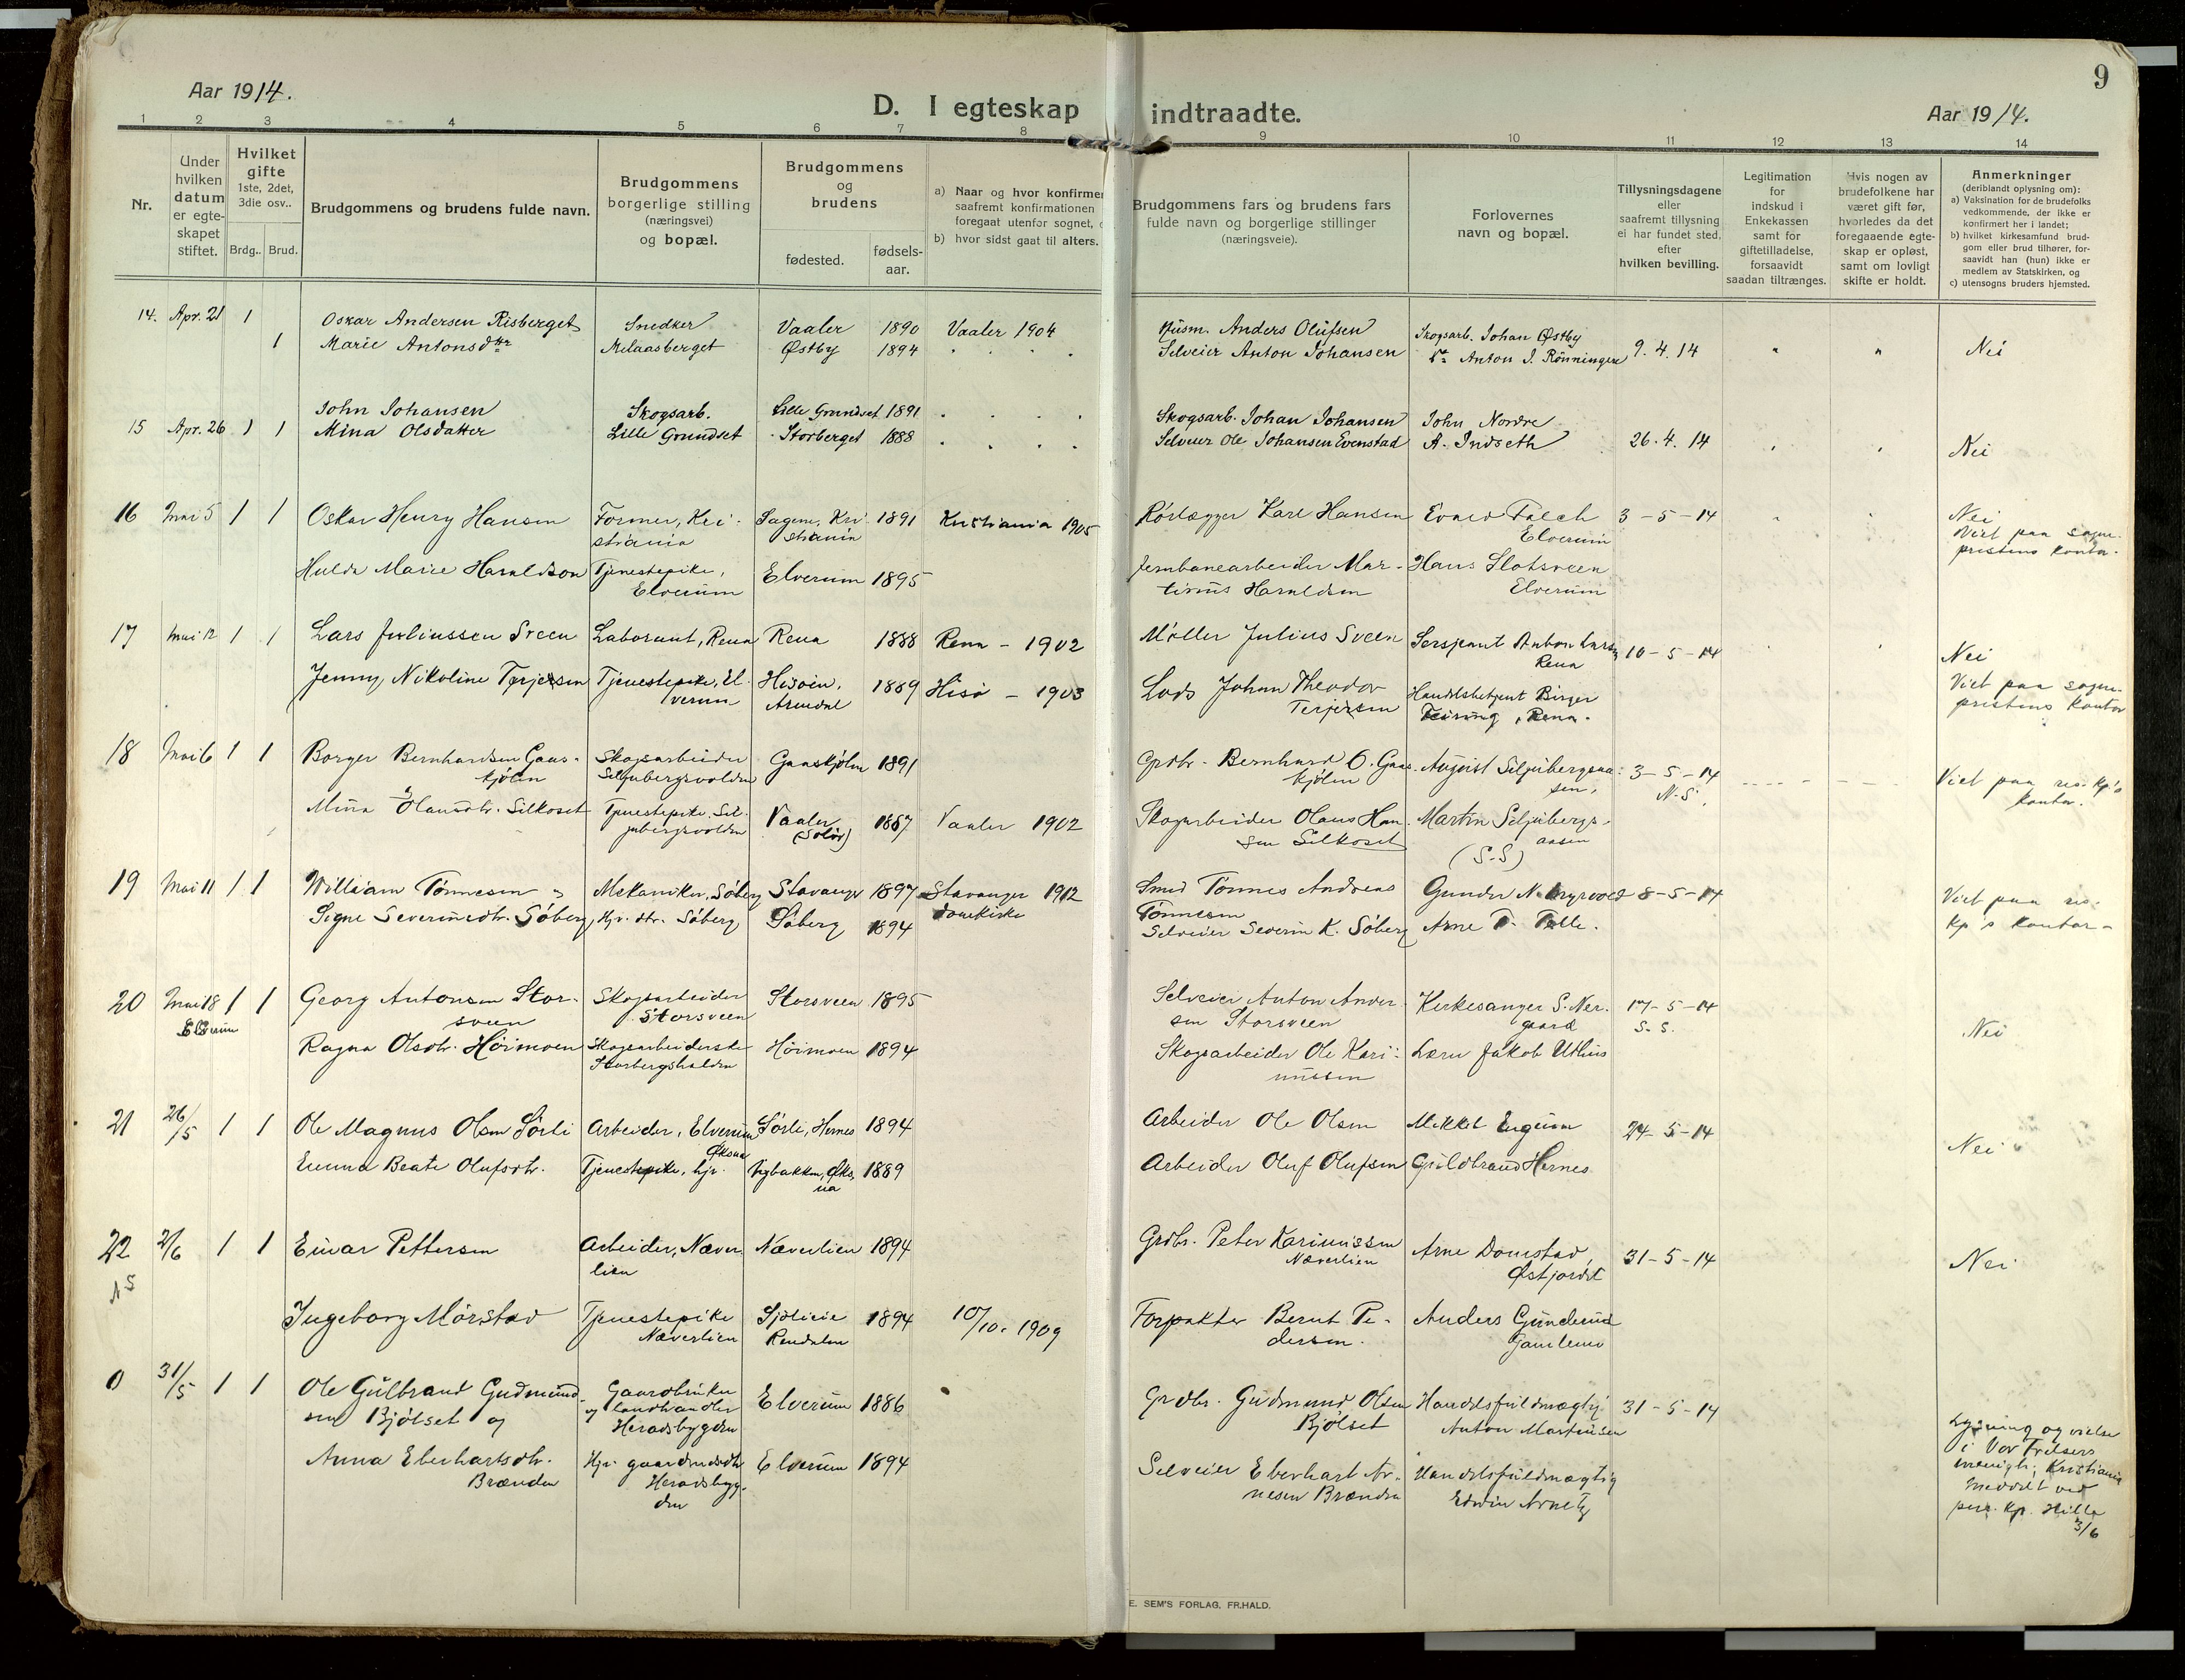 9
Aar 1914.
D. I egteskap indtraadte.
Aar 1914.
1 2 3 4 5 6 7 8 9 10 11 12 13 14
Nr.
Under
hvilken
datum
er egte-
skapet
stiftet.
Hvilket
gifte
1ste, 2det,
3die osv..
Brdg.. Brud.
Brudgommens og brudens fulde navn.
Brudgommens
borgerlige stilling
(næringsvei)
og bopæl.
Brudgommens
og
brudens
fødested.
fødsels-
aar.
a) Naar og hvor konfirmer
saafremt konfirmationen
foregaat utenfor sognet,
b) hvor sidst gaat til alters.
Brudgommens fars og brudens fars
fulde navn og borgerlige stillinger
(næringsveie).
Forlovernes
navn og bopæl.
Tillysningsdagene
eller
saafremt tillysning
ei har fundet sted,
efter
hvilken bevilling.
Legitimation
for
indskud i
Enkekassen
samt for
giftetilladelse,
forsaavidt
saadan tiltrænges.
Hvis nogen av
brudefolkene har
været gift før,
hvorledes da det
foregaaende egte-
skap er opløst,
samt om lovligt
skifte er holdt.
Anmerkninger
(deriblandt oplysning om):
a) Vaksination for de brudefolks
vedkommende, der ikke er
konfirmert her i landet;
b) hvilket kirkesamfund brud-
gom eller brud tilhører, for-
saavidt han (hun) ikke er
medlem av Statskirken, og
c) utensogns bruders hjemsted.
14. Apr. 21 1 Oskar Andersen Risberget Snedker Vaaler 1890 Vaaler 1904 Husm. Anders Olufsen Skogsarb. Johan Østby
1 Marie Antonsdtr Østby 1894 Selveier Anton Johansen Anton J. Rønningen 9.4.14 " " Nei
John Johansen Skogsarb. Lille Grundset 1891 Skogsarb. Johan Johansen John Nordre
15 Apr. 26 1 1 Mina Olsdatter Lille Grundset Storberget 1888 Selveier Ole Johansen Evenstad A. Indseth 26.4.14 Nei
16 Mai 5 1 1 Oskar Henry Hansen Former, Kri- Sagene, Kri- 1891 Kristiania 1905 Rørlægger Karl Hansen Evald Falch 3-5-14 Nei
stiania stiania Elverum Viet paa sogne-
prestens kontor.
Hulda Marie Haraldson Tjenestepike, Elverum 1895 Jernbanearbeider Mar- Hans Slotsveen
Elverum tinus Haraldsen Elverum
17 Mai 12 1 1 Lars Juliussen Sveen Laborant, Rena Rena 1888 Rena - 1902 Møller Julius Sveen Sersjeant Anton Larsen 10-5-14
Rena Nei
Jenny Nikoline Terjesen Tjenestepike, El- Hisøin, 1889 Hisø - 1903 Lods Johan Theodor Handelsbetjent Birger Viet paa sogne-
verum Arendal Terjesen Teiring, Rena. prestens kontor
18 Mai 6 1 1 Borger Bernhardsen Gaas- Skogsarbeider Gaaskjølen 1891 Grdbr. Bernhard O. Gaas- August Siljubergsaa- 3-5-14 Viet paa res. kp's
kjølen Siljubergsvolden kjølen sen, N.S. kontor.
Mina Olausdtr. Silkoset Tjenestepike, Sil- Vaaler 1887 Vaaler 1902 Skogarbeider Olaus Han- Martin Siljubergs-
jubergsvolden (Solør) sen Silkoset aasen
(S.S)
19 Mai 11 1 1 William Tønnesen Mekaniker, Søberg Stavanger 1897 Stavanger 1912 Smed Tønnes Andreas Gunder N. Myrvold 8-5-14 Viet paa res.
Domkirke Tønnesen kp's kontor-
Signe Severinsdtr. Søberg Hjv. dtr. Søberg Søberg 1894 Selveier Severin K. Søberg Arne T. Telle.
20 Mai 18 1 1 Georg Antonsen Stor- Skogsarbeider Storsveen 1895 Selveier Anton Ander- Kirkesanger S. Ner- 17-5-14
Elverum sveen Storsveen sen Storsveen gaard S.S. Nei
Ragna Olsdtr. Høimoen Høimoen 1894 Skogsarbeider Ole Kari- Lærer Jakob Uthus
Storbergshalden nussen
21 26/5 1 1 Ole Magnus Olsen Sørli Arbeider, Elverum Sørli, Hernes 1894 Arbeider Ole Olsen Mikkel Engum 24-5-14
Øksna Nei
Emma Beate Olufsdtr. Tjenestepike, hjr. Vigbakken, Øks- 1889 Arbeider Oluf Olufsen Guldbrand Hernes
na
22 2/6 1 1 Einar Pettersen Arbeider, Næver- Næverlien 1894 Grdbr. Peter Karinussen Arne Domstad, 31-5-14 Nei
lien Næverlien Østfjordet
NS
Ingeborg Mørstad Tjenestepike Sjølieie 1894 10/10. 1909 Forpakter Bernt Pe- Anders Gunderud
Næverlien Rendalen dersen. Gamlemo
0 31/5 1 1 Ole Gulbrand Gudmund- Gaardbruker Elverum 1886 Grdbr. Gudmund Olsen Handelsfuldmægtig 31-5-14
sen Bjølset og og landhandler Bjølset Anton Martinsen Lysning og vielse
Heradsbygden i Vor Frelsers
Anna Eberhartsdtr. Hjv. gaardmdsdtr Elverum 1894 Selveier Eberhart Ar- Handelsfuldmægtig menigh; Kristiania
Brænden Heradsbyg- nesen Brænden Edwin Arnetz Meddelt ved
den pers. kp. Hille
3/6
E. SEM'S FORLAG, FR.HALD.